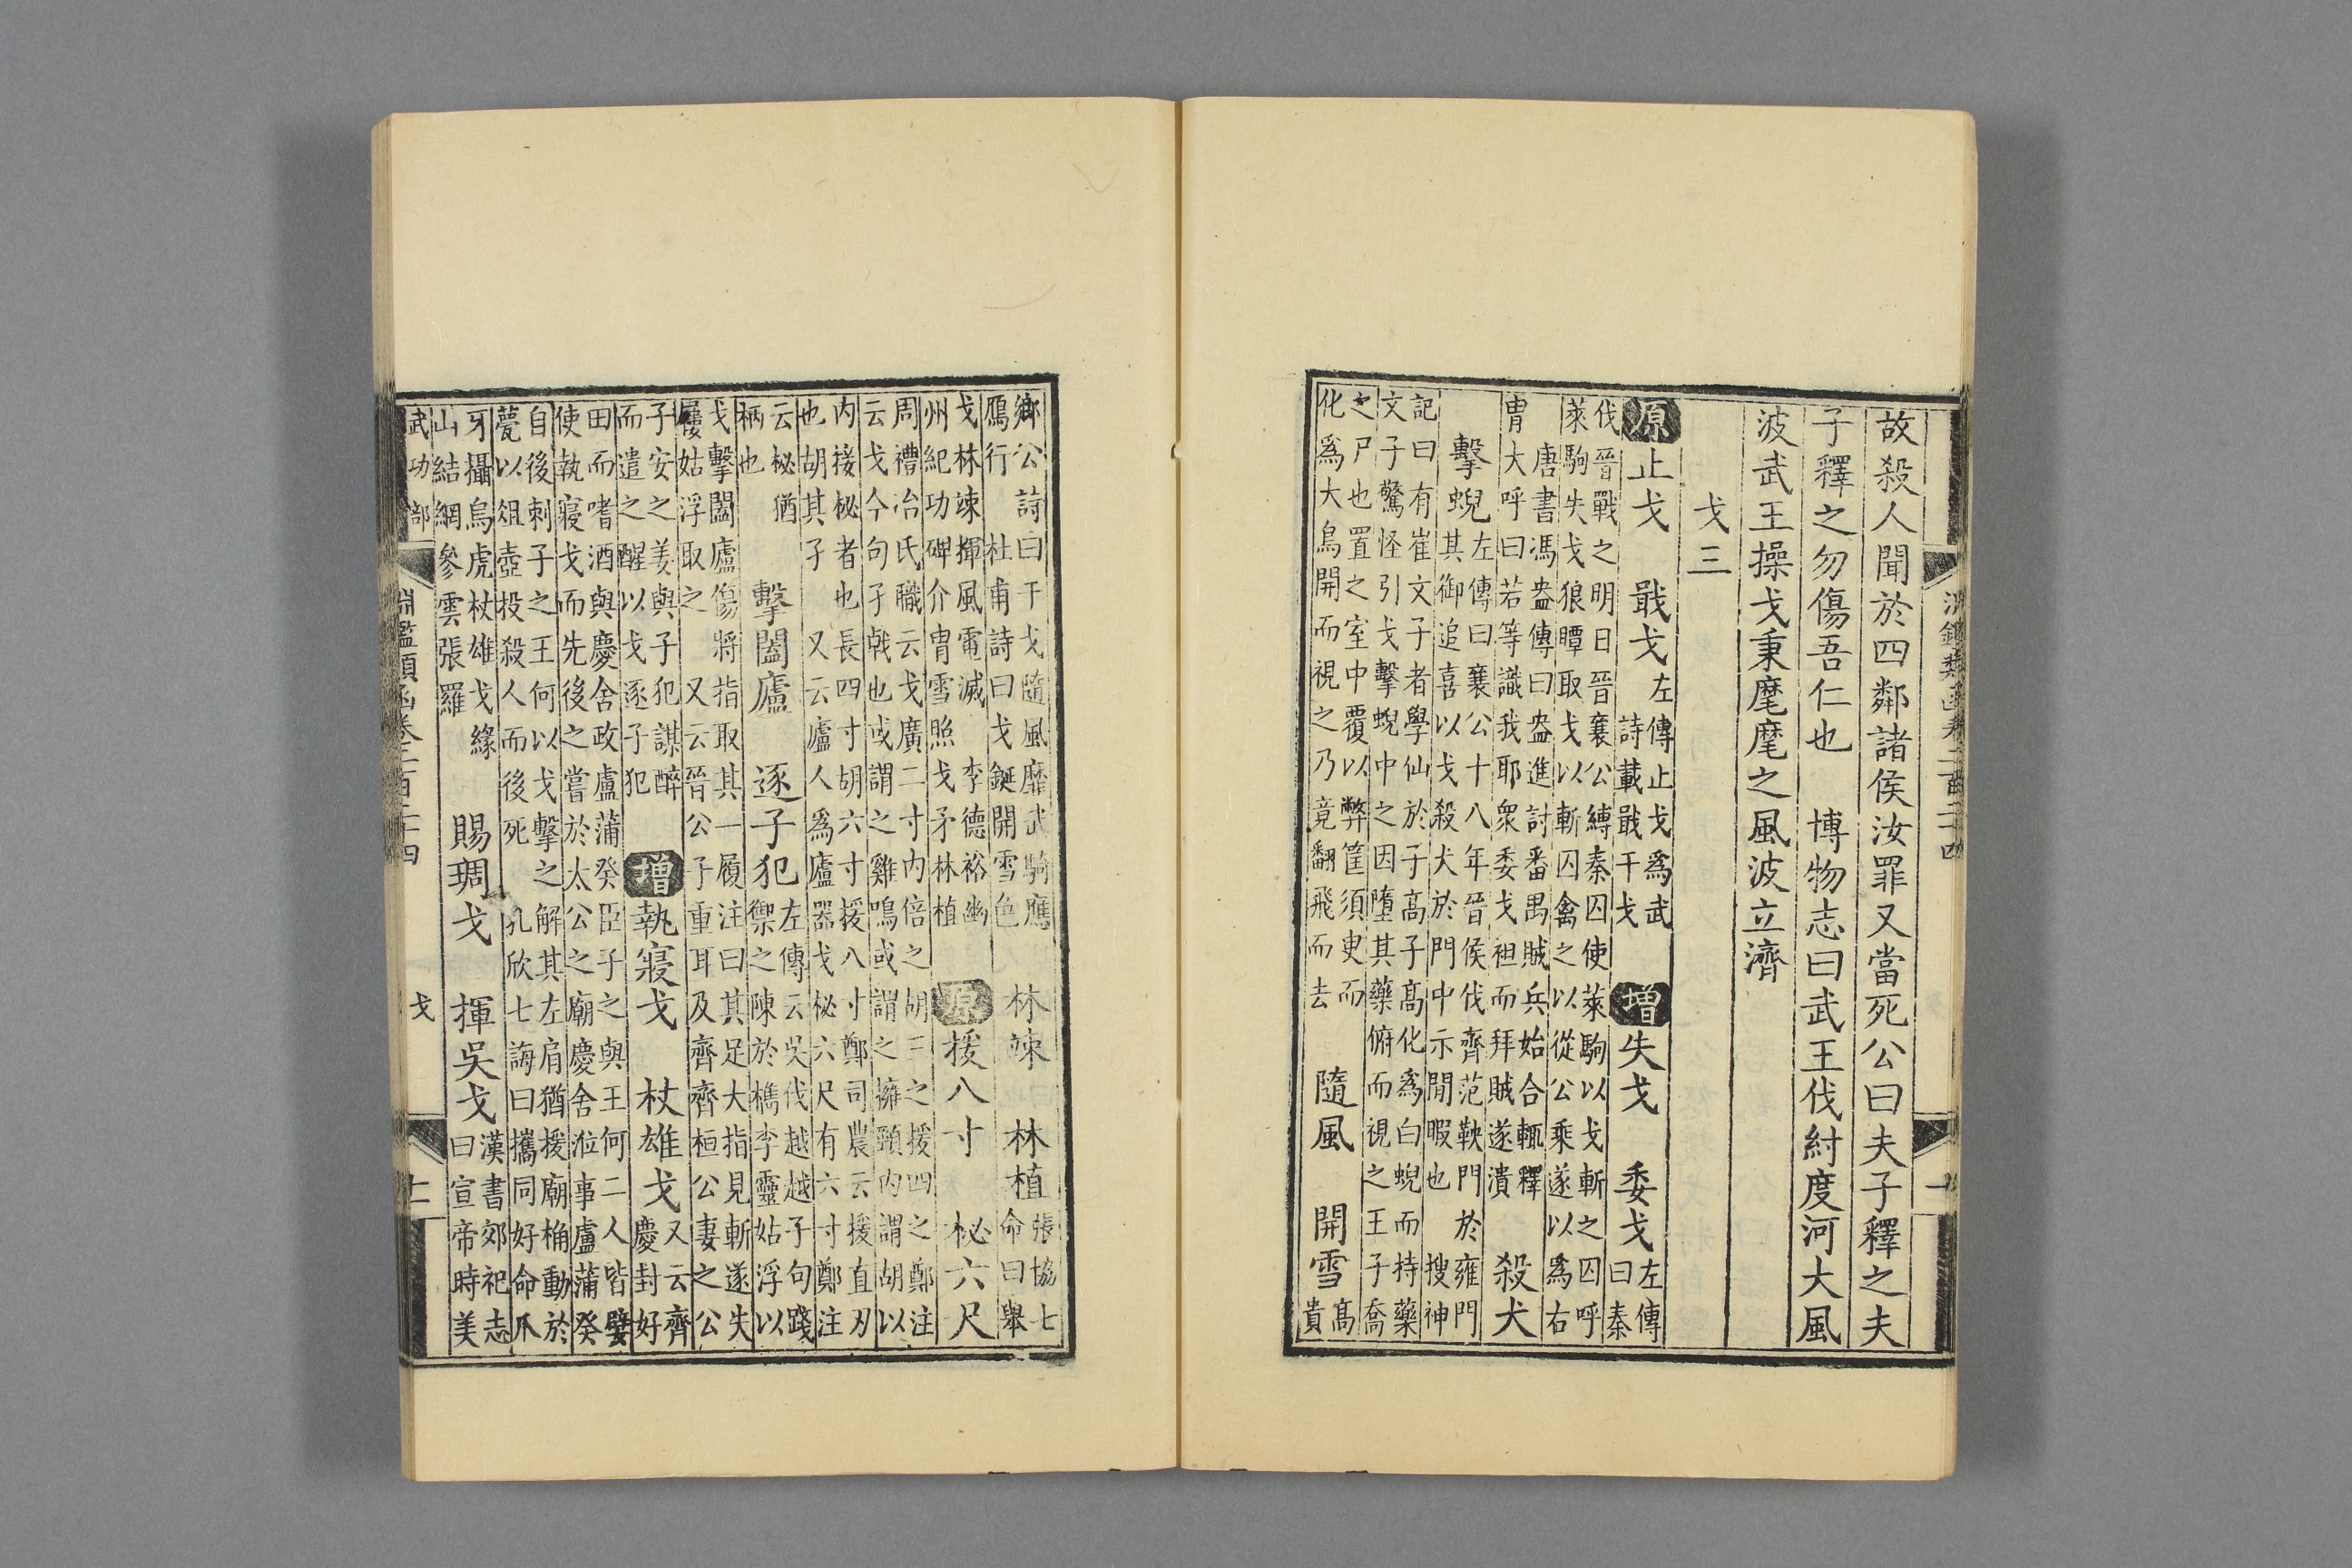 故殺人聞於四鄰諸侯汝罪又當死公曰夫子釋之夫
子釋之勿傷吾仁也　博物志曰武王伐紂度河大風
波武王操戈秉麾麾之風波立濟
戈三
原止戈　戢戈左傳止戈爲武
詩載戢干戈　增失戈　委戈左傳
曰秦
伐晉戰之明日晉襄公縛秦囚使萊駒以戈斬之囚呼
萊駒失戈狼瞫取戈以斬囚禽之以從公乘遂以爲右
唐書馮盎傳曰盎進討番禺賊兵始合輒釋
冑大呼曰若等識我耶衆委戈袒而拜賊遂潰　殺犬
擊蜺左傳曰襄公十八年晉侯伐齊范鞅門於雍門
其御追喜以戈殺犬於門中示閒暇也　搜神
記曰有崔文子者學仙於子高子高化爲白蜺而持藥
文子驚怪引戈擊蜺中之因墮其藥俯而視之王子喬
之尸也置之室中覆以弊筐須臾而
化爲大鳥開而視之乃竟翻飛而去　隨風　開雪高
貴
鄉公詩曰干戈隨風靡武騎應
鴈行　杜甫詩曰戈鋋開雪色　林竦　林植張協七
命曰舉
戈林竦揮風電滅　李德裕幽
州紀功碑介冑雪照戈矛林植　原援八寸　柲六尺
周禮冶氏職云戈廣二寸內倍之胡三之援四之鄭注
云戈今句孑戟也或謂之雞鳴或謂之擁頸內謂胡以
內接柲者也長四寸胡六寸援八寸鄭司農云援直刃
也胡其孑　又云廬人爲廬器戈柲六尺有六寸鄭注
云柲猶
柄也　擊闔廬　逐子犯左傳云吳伐越越子句踐
禦之陳於檇李靈姑浮以
戈擊闔廬傷將指取其一屨注曰其足大指見斬遂失
屨姑浮取之　又云晉公子重耳及齊齊桓公妻之公
子安之姜與子犯謀醉
而遣之醒以戈逐子犯　增執寢戈　杖雄戈又云齊
慶封好
田而嗜酒與慶舍政盧蒲癸臣子之與王何二人皆嬖
使執寢戈而先後之嘗於太公之廟慶舍涖事盧蒲癸
自後刺子之王何以戈擊之解其左肩猶援廟桷動於
甍以俎壺投殺人而後死　孔欣七誨曰攜同好命爪
牙攝烏虎杖雄戈緣
山結網參雲張羅　賜琱戈　揮吳戈漢書郊祀志
曰宣帝時美
武功部　淵鑑類函卷二百二十四　戈　十一